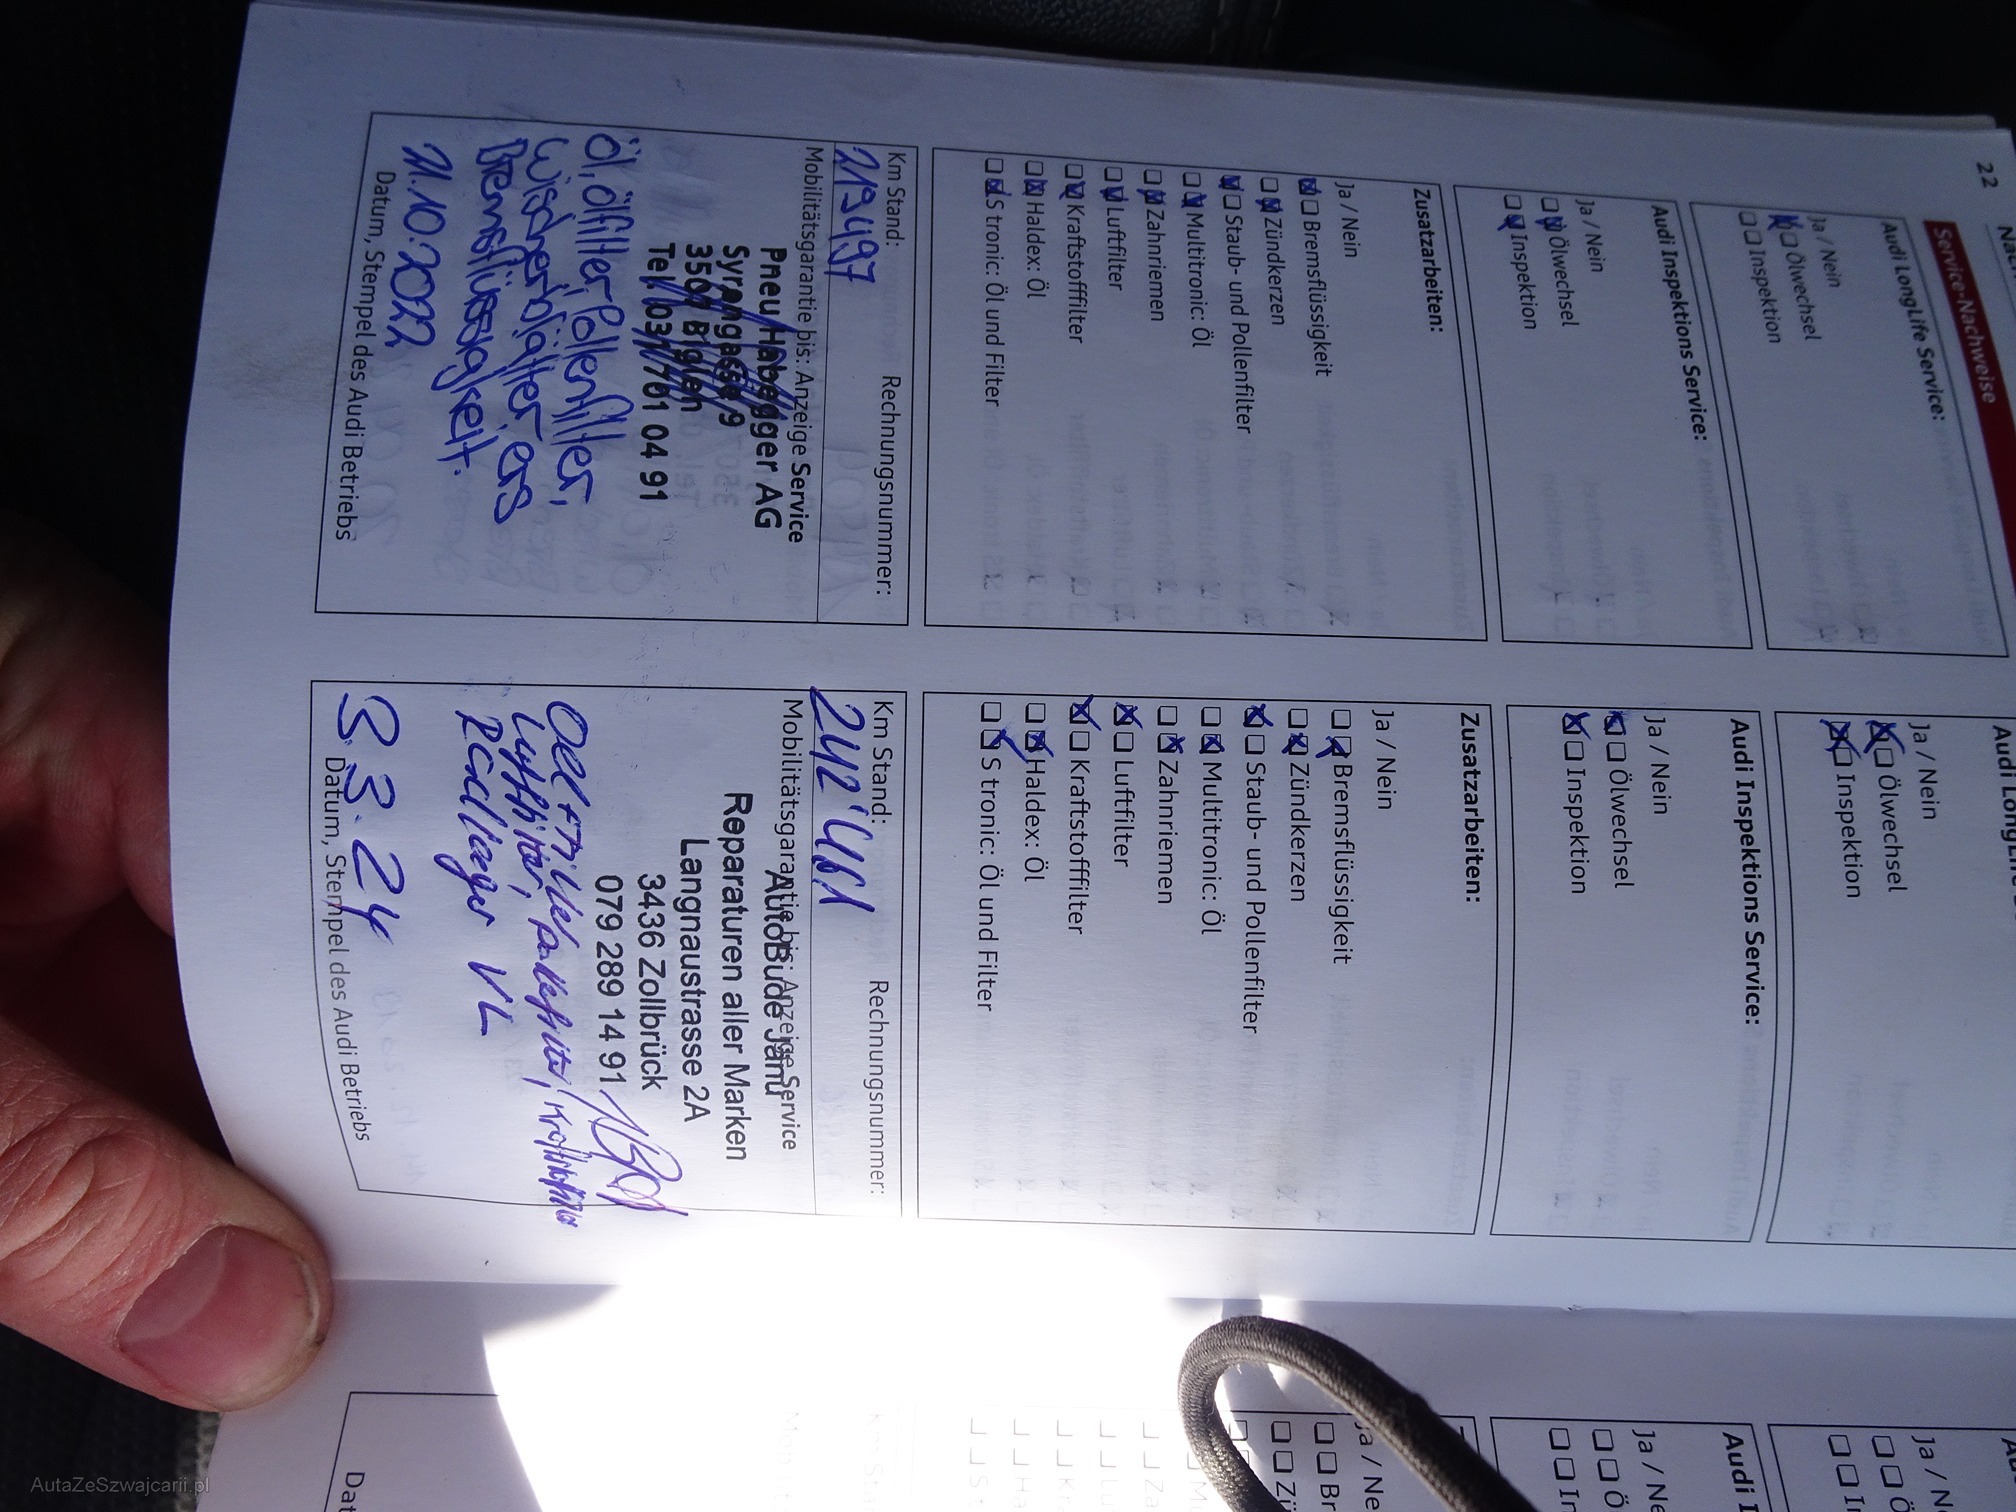 22
Service-Nachweise
Audi LongLife Service:
Ja / Nein
Ölwechsel
Inspektion
Audi Inspektions Service:
Ja / Nein
Ölwechsel
Inspektion
Zusatzarbeiten:
Ja / Nein
Bremsflüssigkeit
Zündkerzen
Staub- und Pollenfilter
Multitronic: Öl
Zahnriemen
Luftfilter
Kraftstofffilter
Haldex: Öl
S tronic: Öl und Filter
Km Stand: Rechnungsnummer:
219497
Mobilitätsgarantie bis: Anzeige Service
Pneu Habegger AG
Syrangasse 9
3507 Biglen
Tel. 031 701 04 91
Öl, Ölfilter, Pollenfilter,
Wischerblätter ers
Bremsflüssigkeit.
21.10.2022
Datum, Stempel des Audi Betriebs
Ja / Nein
Ölwechsel
Inspektion
Audi Inspektions Service:
Ja / Nein
Ölwechsel
Inspektion
Zusatzarbeiten:
Ja / Nein
Bremsflüssigkeit
Zündkerzen
Staub- und Pollenfilter
Multitronic: Öl
Zahnriemen
Luftfilter
Kraftstofffilter
Haldex: Öl
S tronic: Öl und Filter
Km Stand: Rechnungsnummer:
Mobilitätsgarantie bis: Anzeige Service
AutoBude Jänu
Reparaturen aller Marken
Langnaustrasse 2A
3436 Zollbrück
079 289 14 91
Luftfilter,
Radlager VL
3.3.24
Datum, Stempel des Audi Betriebs
Ja / N
Audi I
Ja / Ne
Dat
AutaZeSzwajcarii.pl